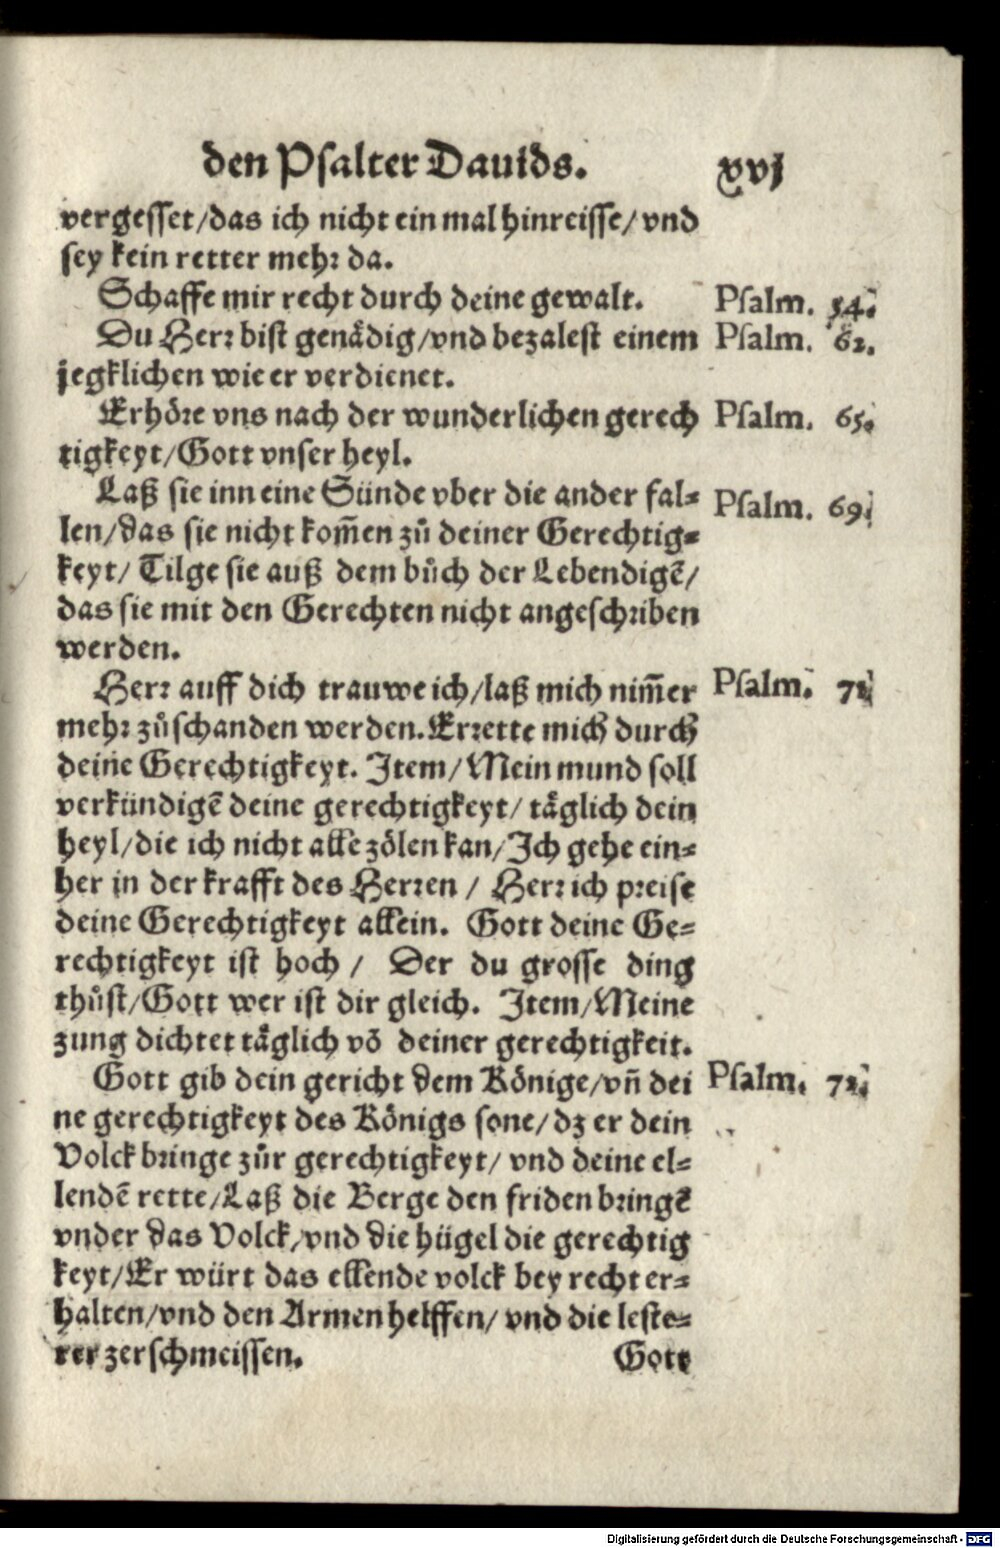 den Psalter Dauids. xvj
vergesset/das ich nicht ein mal hinreisse/ vnd
sey kein retter mehr da.
Schaffe mir recht durch deine gewalt. Psalm. 54.
Du Herr bist genådig/vnd bezalest einem Psalm. 62.
jegklichen wie er verdienet.
Erhöre vns nach der wunderlichen gerech Psalm. 65.
tigkeyt/Gott vnser heyl.
Laß sie inn eine Sünde vber die ander fal= Psalm. 69.
len/das sie nicht kom̃en zů deiner Gerechtig=
keyt/ Tilge sie auß dem bůch der Lebendigẽ/
das sie mit den Gerechten nicht angeschriben
werden.
Herr auff dich trauwe ich/laß mich nim̃er Psalm. 71
mehr zůschanden werden. Errette mich durch
deine Gerechtigkeyt. Item/Mein mund soll
verkündigẽ deine gerechtigkeyt/ tåglich dein
heyl/die ich nicht alle zölen kan/Ich gehe ein=
her in der krafft des Herren / Herr ich preise
deine Gerechtigkeyt allein. Gott deine Ge=
rechtigkeyt ist hoch / Der du grosse ding
thůst/Gott wer ist dir gleich. Item/Meine
zung dichtet tåglich võ deiner gerechtigkeit.
Gott gib dein gericht dem Könige/vñ dei Psalm. 72.
ne gerechtigkeyt des Königs sone/dz er dein
Volck bringe zůr gerechtigkeyt/ vnd deine el=
lendẽ rette/Laß die Berge den friden bringẽ
vnder das Volck/vnd die hügel die gerechtig
keyt/Er würt das ellende volck bey recht er=
halten/vnd den Armen helffen/ vnd die leste=
rer zerschmeissen. Gott
Digitalisierung gefördert durch die Deutsche Forschungsgemeinschaft - DFG